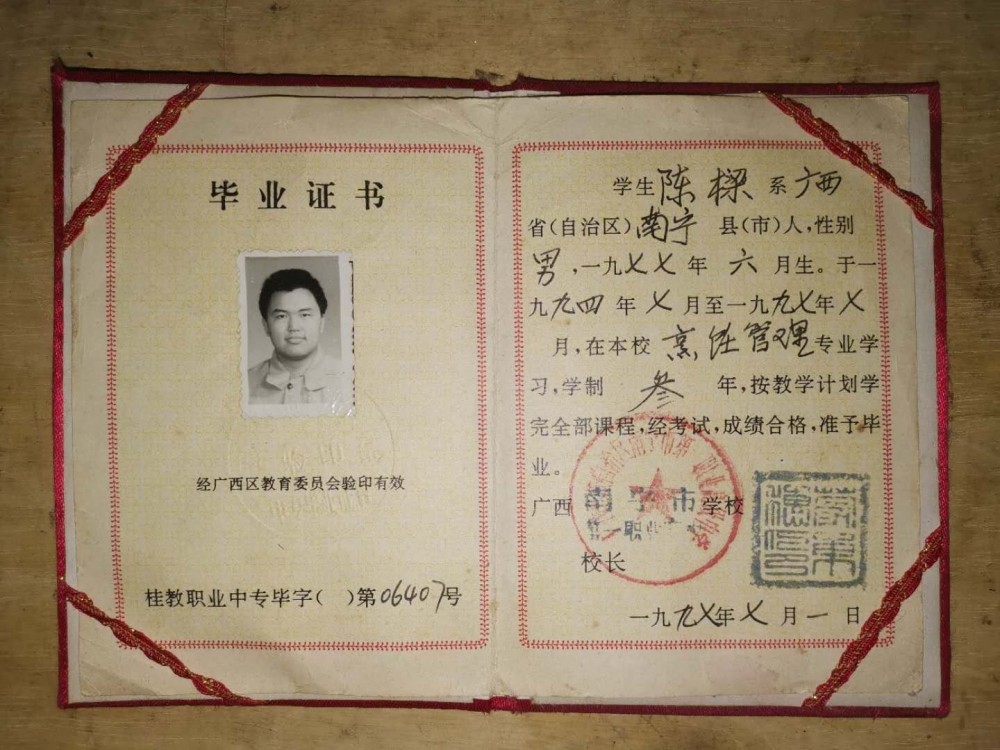 毕业证书
经广西区教育委员会验印有效
桂教职业中专毕字( )第06407号
学生陈樑系广西
省(自治区)南宁县(市)人,性别
男,一九七七年六月生。于一
九九四年七月至一九九七年七
月,在本校烹饪管理专业学
习,学制叁年,按教学计划学
完全部课程,经考试,成绩合格,准予毕
业。
广西南宁市学校
第一职业
校长
一九九七年七月一日